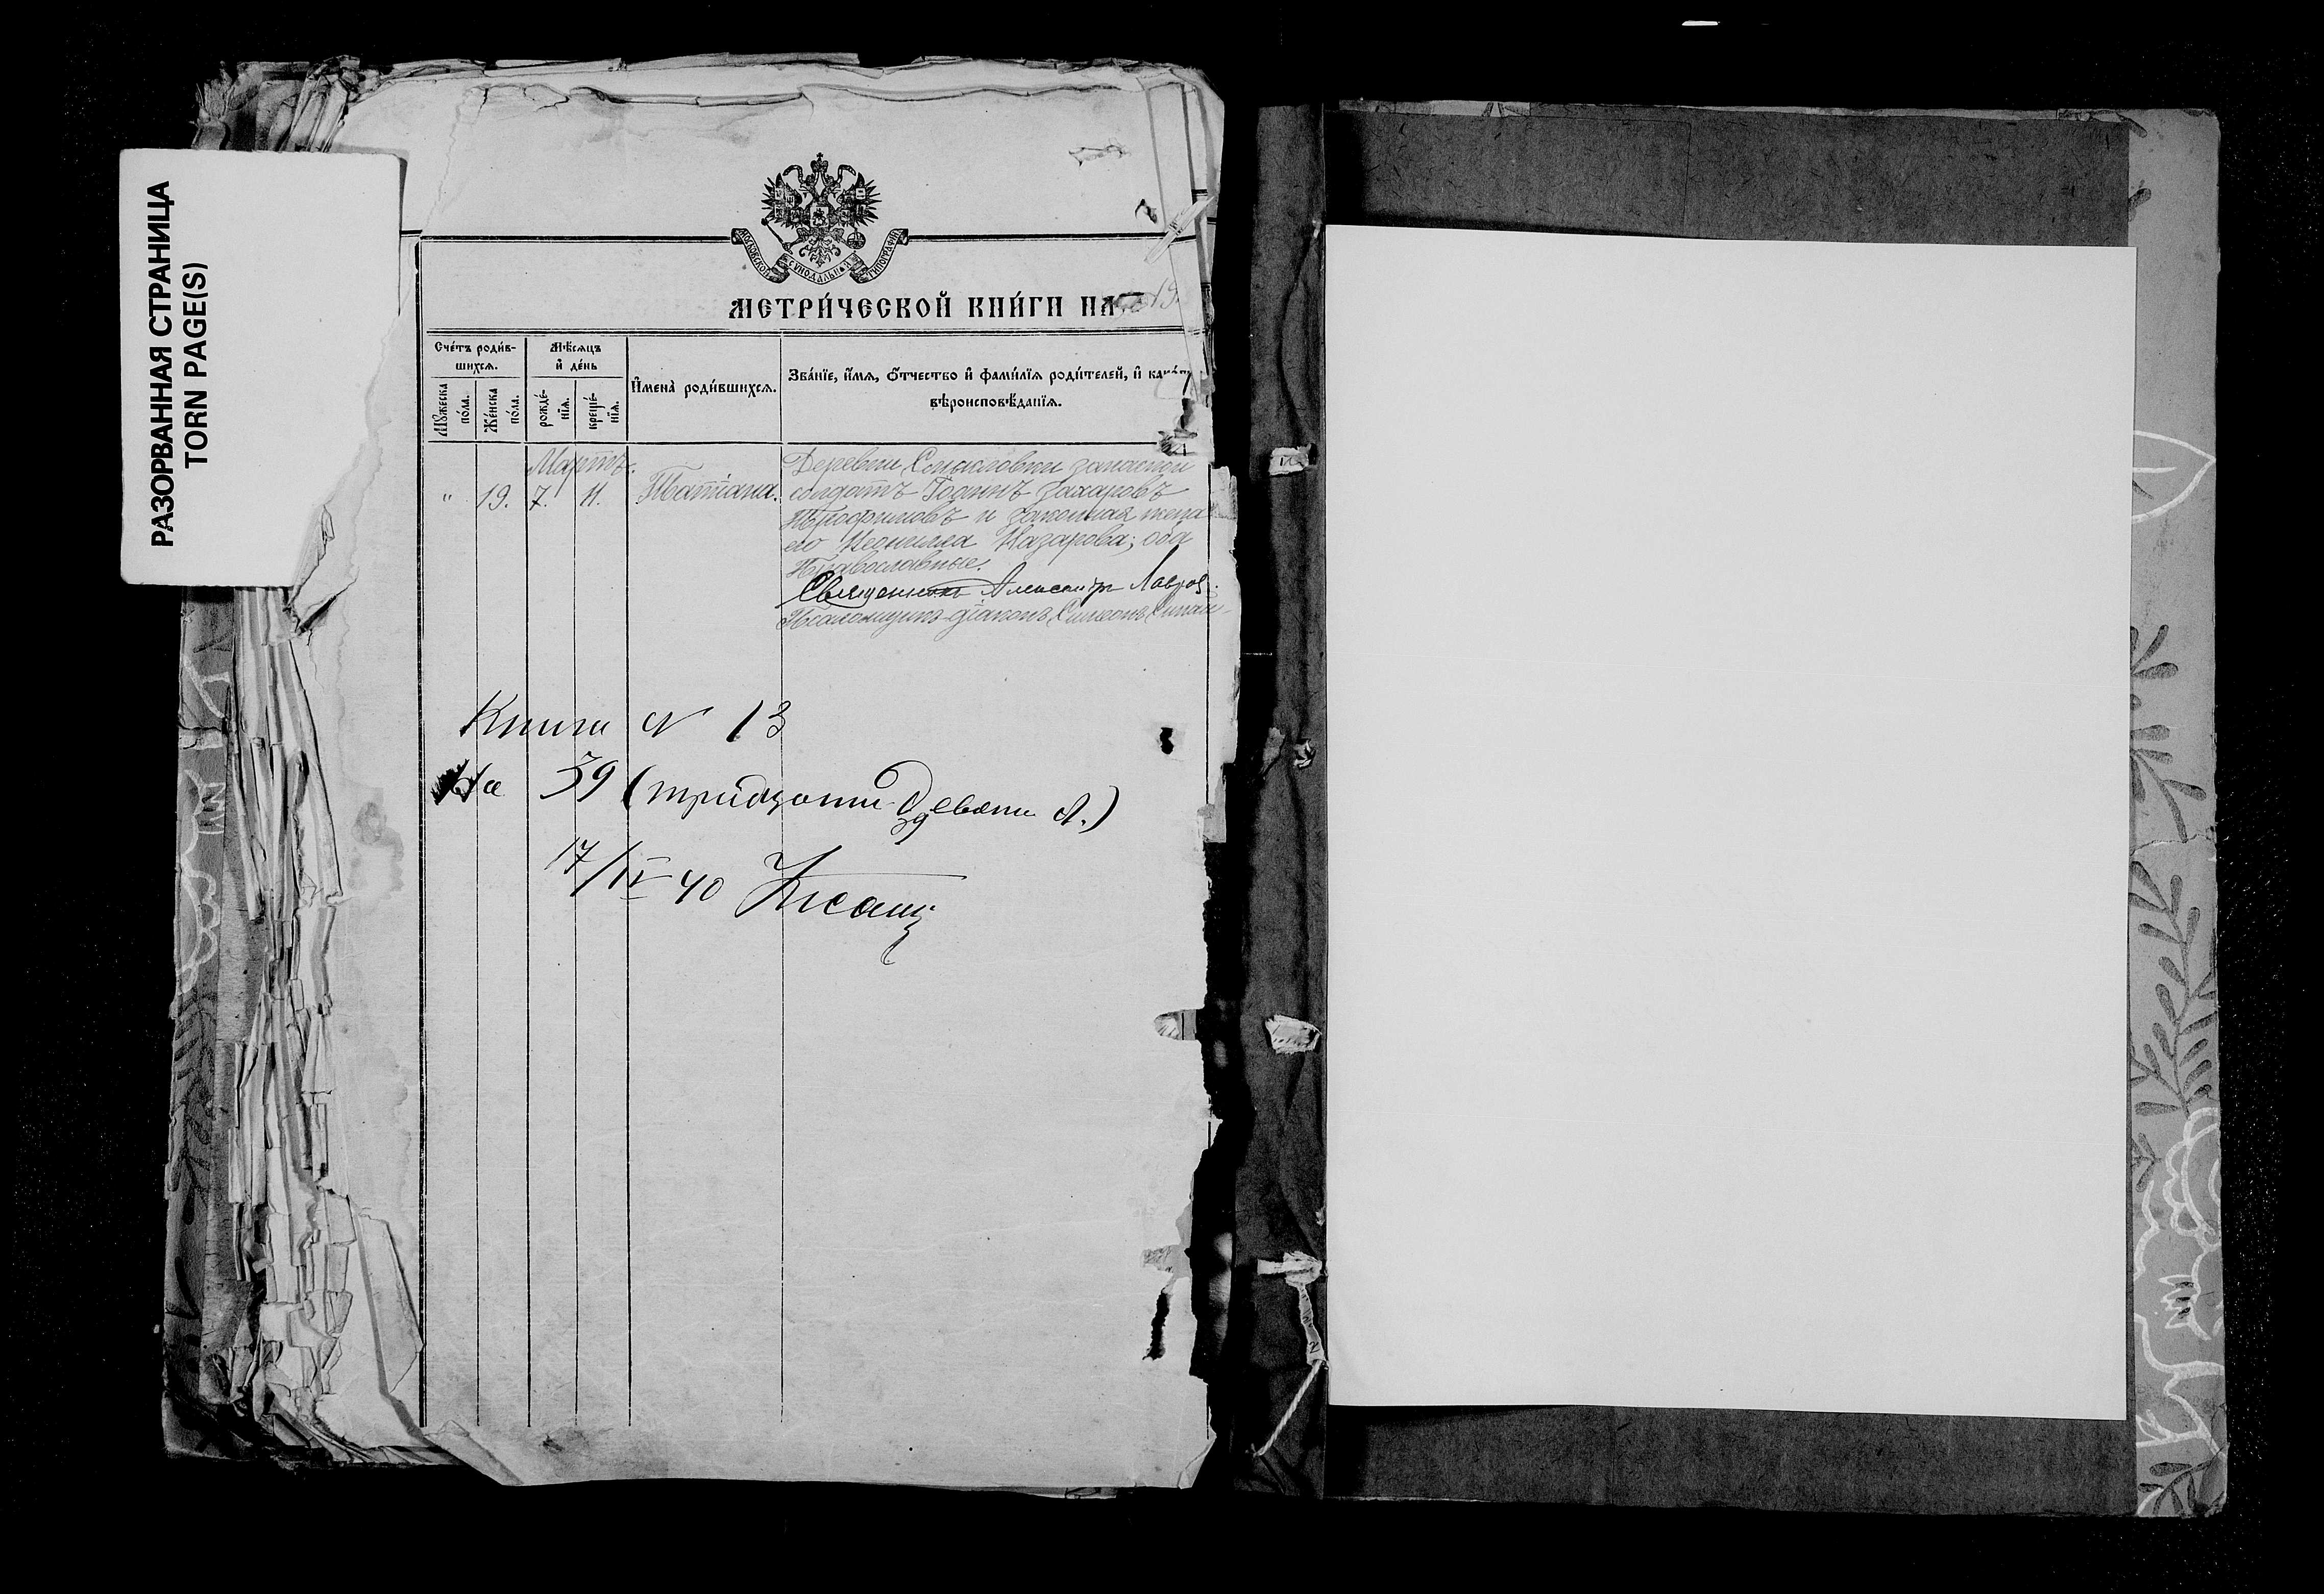 РАЗОРВАННАЯ СТРАНИЦА
TORN PAGE(S)
МОСКОВСКОЙ СѴНОДАЛЬНОЙ ТИПОГРАФІИ
МЕТРИ́ЧЕСКОЙ КНИ́ГИ НА
Сче́тъ роди́в-
шихся.
Мꙋ́жеска
по́ла.
Же́нска
по́ла.
Мѣ́сяцъ
и҆ де́нь
рожде́-
нїѧ.
креще́-
нїѧ.
И҆мена̀ роди́вшихся.
Зва́нїе, и҆́мя, ѻ҆́тчество и҆ фами́лїя роди́телей, и҆
вѣроисповѣ́данїя.
Мартъ.
" 19. 7. 11. Татіана.
Деревни запасной
солдатъ Іоаннъ Захаровъ
Трофимовъ и законная жена
его Неонилла Назарова; оба
Православные.
Священникъ Александръ Лавров
Псаломщикъ-діаконъ Симеонъ
Книга № 13
На 39 (тридцати девяти л.)
39
17/IV 40